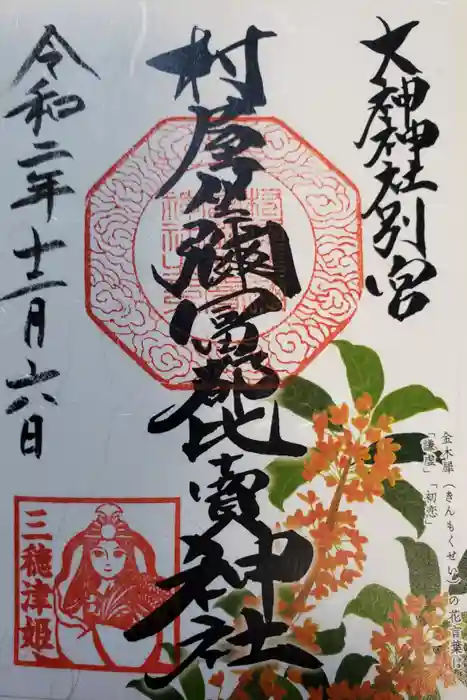 大神神社別宮
村屋坐彌冨都比賣神社
令和二年十二月六日
三穂津姫
金木犀(きんもくせい)の花言葉は
「謙虚」「初恋」